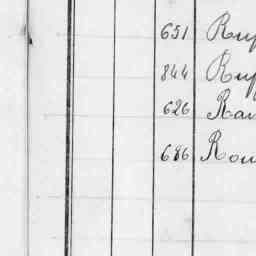 651 Rup
844 Rup
626 Rau
686 Rou